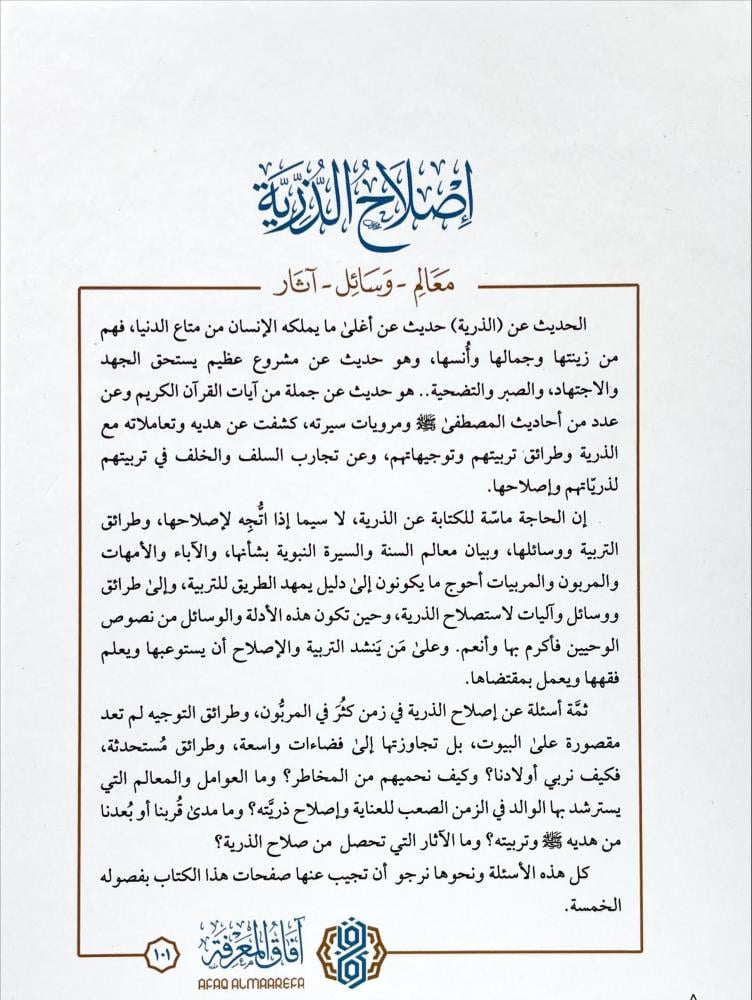 إِصْلَاحُ الذُّرِّيَّة
مَعَالِم - وَسَائِل - آثَار
الحديث عن (الذرية) حديث عن أغلىٰ ما يملكه الإنسان من متاع الدنيا، فهم
من زينتها وجمالها وأُنسها، وهو حديث عن مشروع عظيم يستحق الجهد
والاجتهاد، والصبر والتضحية.. هو حديث عن جملة من آيات القرآن الكريم وعن
عدد من أحاديث المصطفىٰ ﷺ ومرويات سيرته، كشفت عن هديه وتعاملاته مع
الذرية وطرائق تربيتهم وتوجيهاتهم، وعن تجارب السلف والخلف في تربيتهم
لذريّاتهم وإصلاحها.
إن الحاجة ماسّة للكتابة عن الذرية، لا سيما إذا اتُّجِه لإصلاحها، وطرائق
التربية ووسائلها، وبيان معالم السنة والسيرة النبوية بشأنها، والآباء والأمهات
والمربون والمربيات أحوج ما يكونون إلىٰ دليل يمهد الطريق للتربية، وإلىٰ طرائق
ووسائل وآليات لاستصلاح الذرية، وحين تكون هذه الأدلة والوسائل من نصوص
الوحيين فأكرم بها وأنعم. وعلىٰ مَن يَنشد التربية والإصلاح أن يستوعبها ويعلم
فقهها ويعمل بمقتضاها.
ثمَّة أسئلة عن إصلاح الذرية في زمن كثُرَ في المربُّون، وطرائق التوجيه لم تعد
مقصورة علىٰ البيوت، بل تجاوزتها إلىٰ فضاءات واسعة، وطرائق مُستحدثة،
فكيف نربي أولادنا؟ وكيف نحميهم من المخاطر؟ وما العوامل والمعالم التي
يسترشد بها الوالد في الزمن الصعب للعناية وإصلاح ذريَّته؟ وما مدىٰ قُربنا أو بُعدنا
من هديه ﷺ وتربيته؟ وما الآثار التي تحصل من صلاح الذرية؟
كل هذه الأسئلة ونحوها نرجو أن تجيب عنها صفحات هذا الكتاب بفصوله
الخمسة.
آفاق المعرفة
AFAQ ALMAAREFA
١٠١